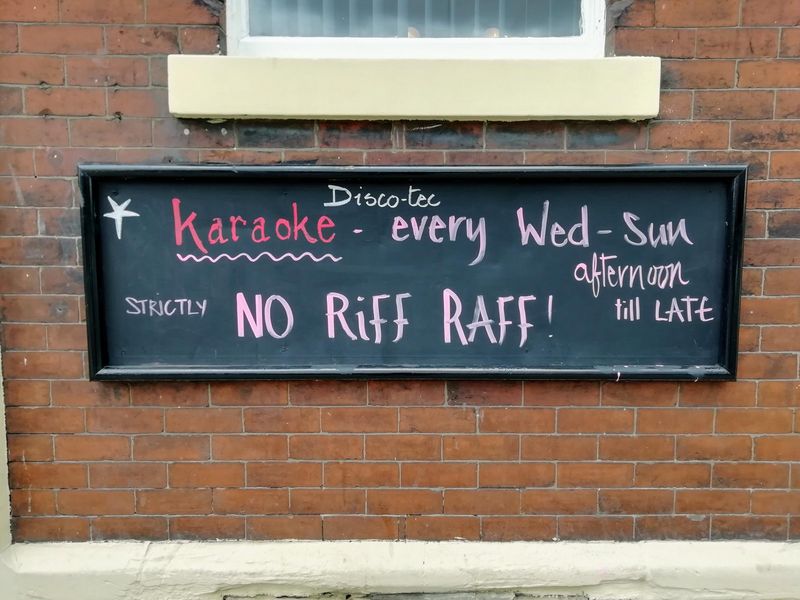 Disco-tec
Karaoke - every Wed - Sun
afternoon
STRICTLY NO RiFF RAFF! till LATE